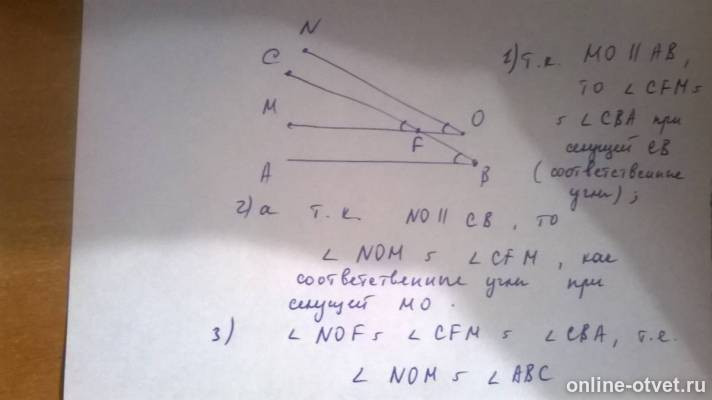 N
C
M
O
F
A
B
1) т.к. MO || AB,
то ∠ CFM =
= ∠ CBA при
секущей CB
(соответственные
углы);
2) а т.к. NO || CB, то
∠ NOM = ∠ CFM, как
соответственные углы при
секущей MO.
3) ∠ NOF = ∠ CFM = ∠ CBA, т.е.
∠ NOM = ∠ ABC
online-otvet.ru